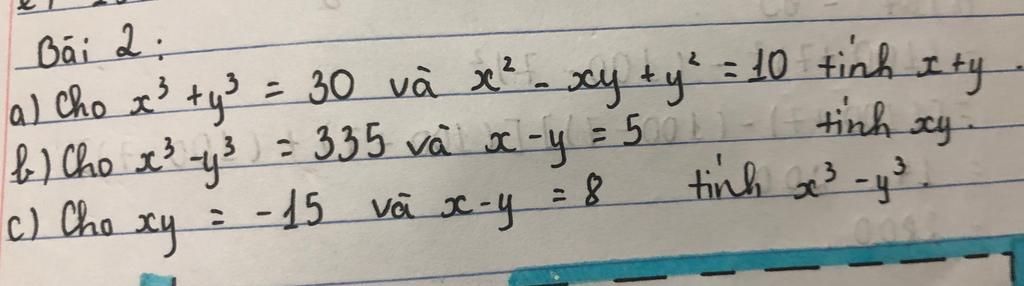 Bài 2:
a) Cho x³ + y³ = 30 và x² - xy + y² = 10 tính x + y.
b) Cho x³ - y³ = 335 và x - y = 5 tính xy.
c) Cho xy = -15 và x - y = 8 tính x³ - y³.